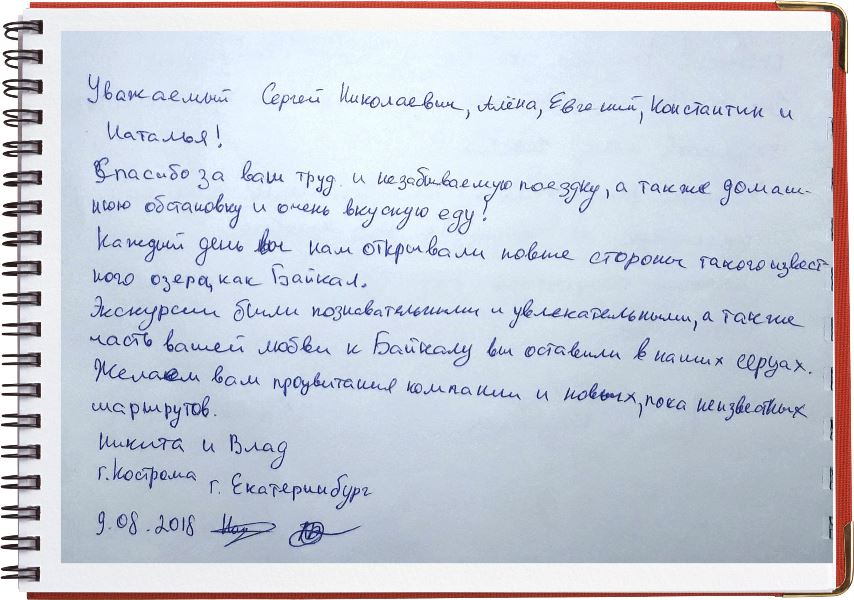 Уважаемый Сергей Николаевич, Алёна, Евгений, Константин и
Наталья!
Спасибо за ваш труд и незабываемую поездку, а также домаш-
нюю обстановку и очень вкусную еду!
Каждый день вы нам открывали новые стороны такого извест-
ного озера, как Байкал.
Экскурсии были познавательными и увлекательными, а также
часть вашей любви к Байкалу вы оставили в наших серцах.
Желаем вам процвитания компании и новых, пока неизвестных
маршрутов.
Никита и Влад
г. Кострома г. Екатеринбург
9.08.2018